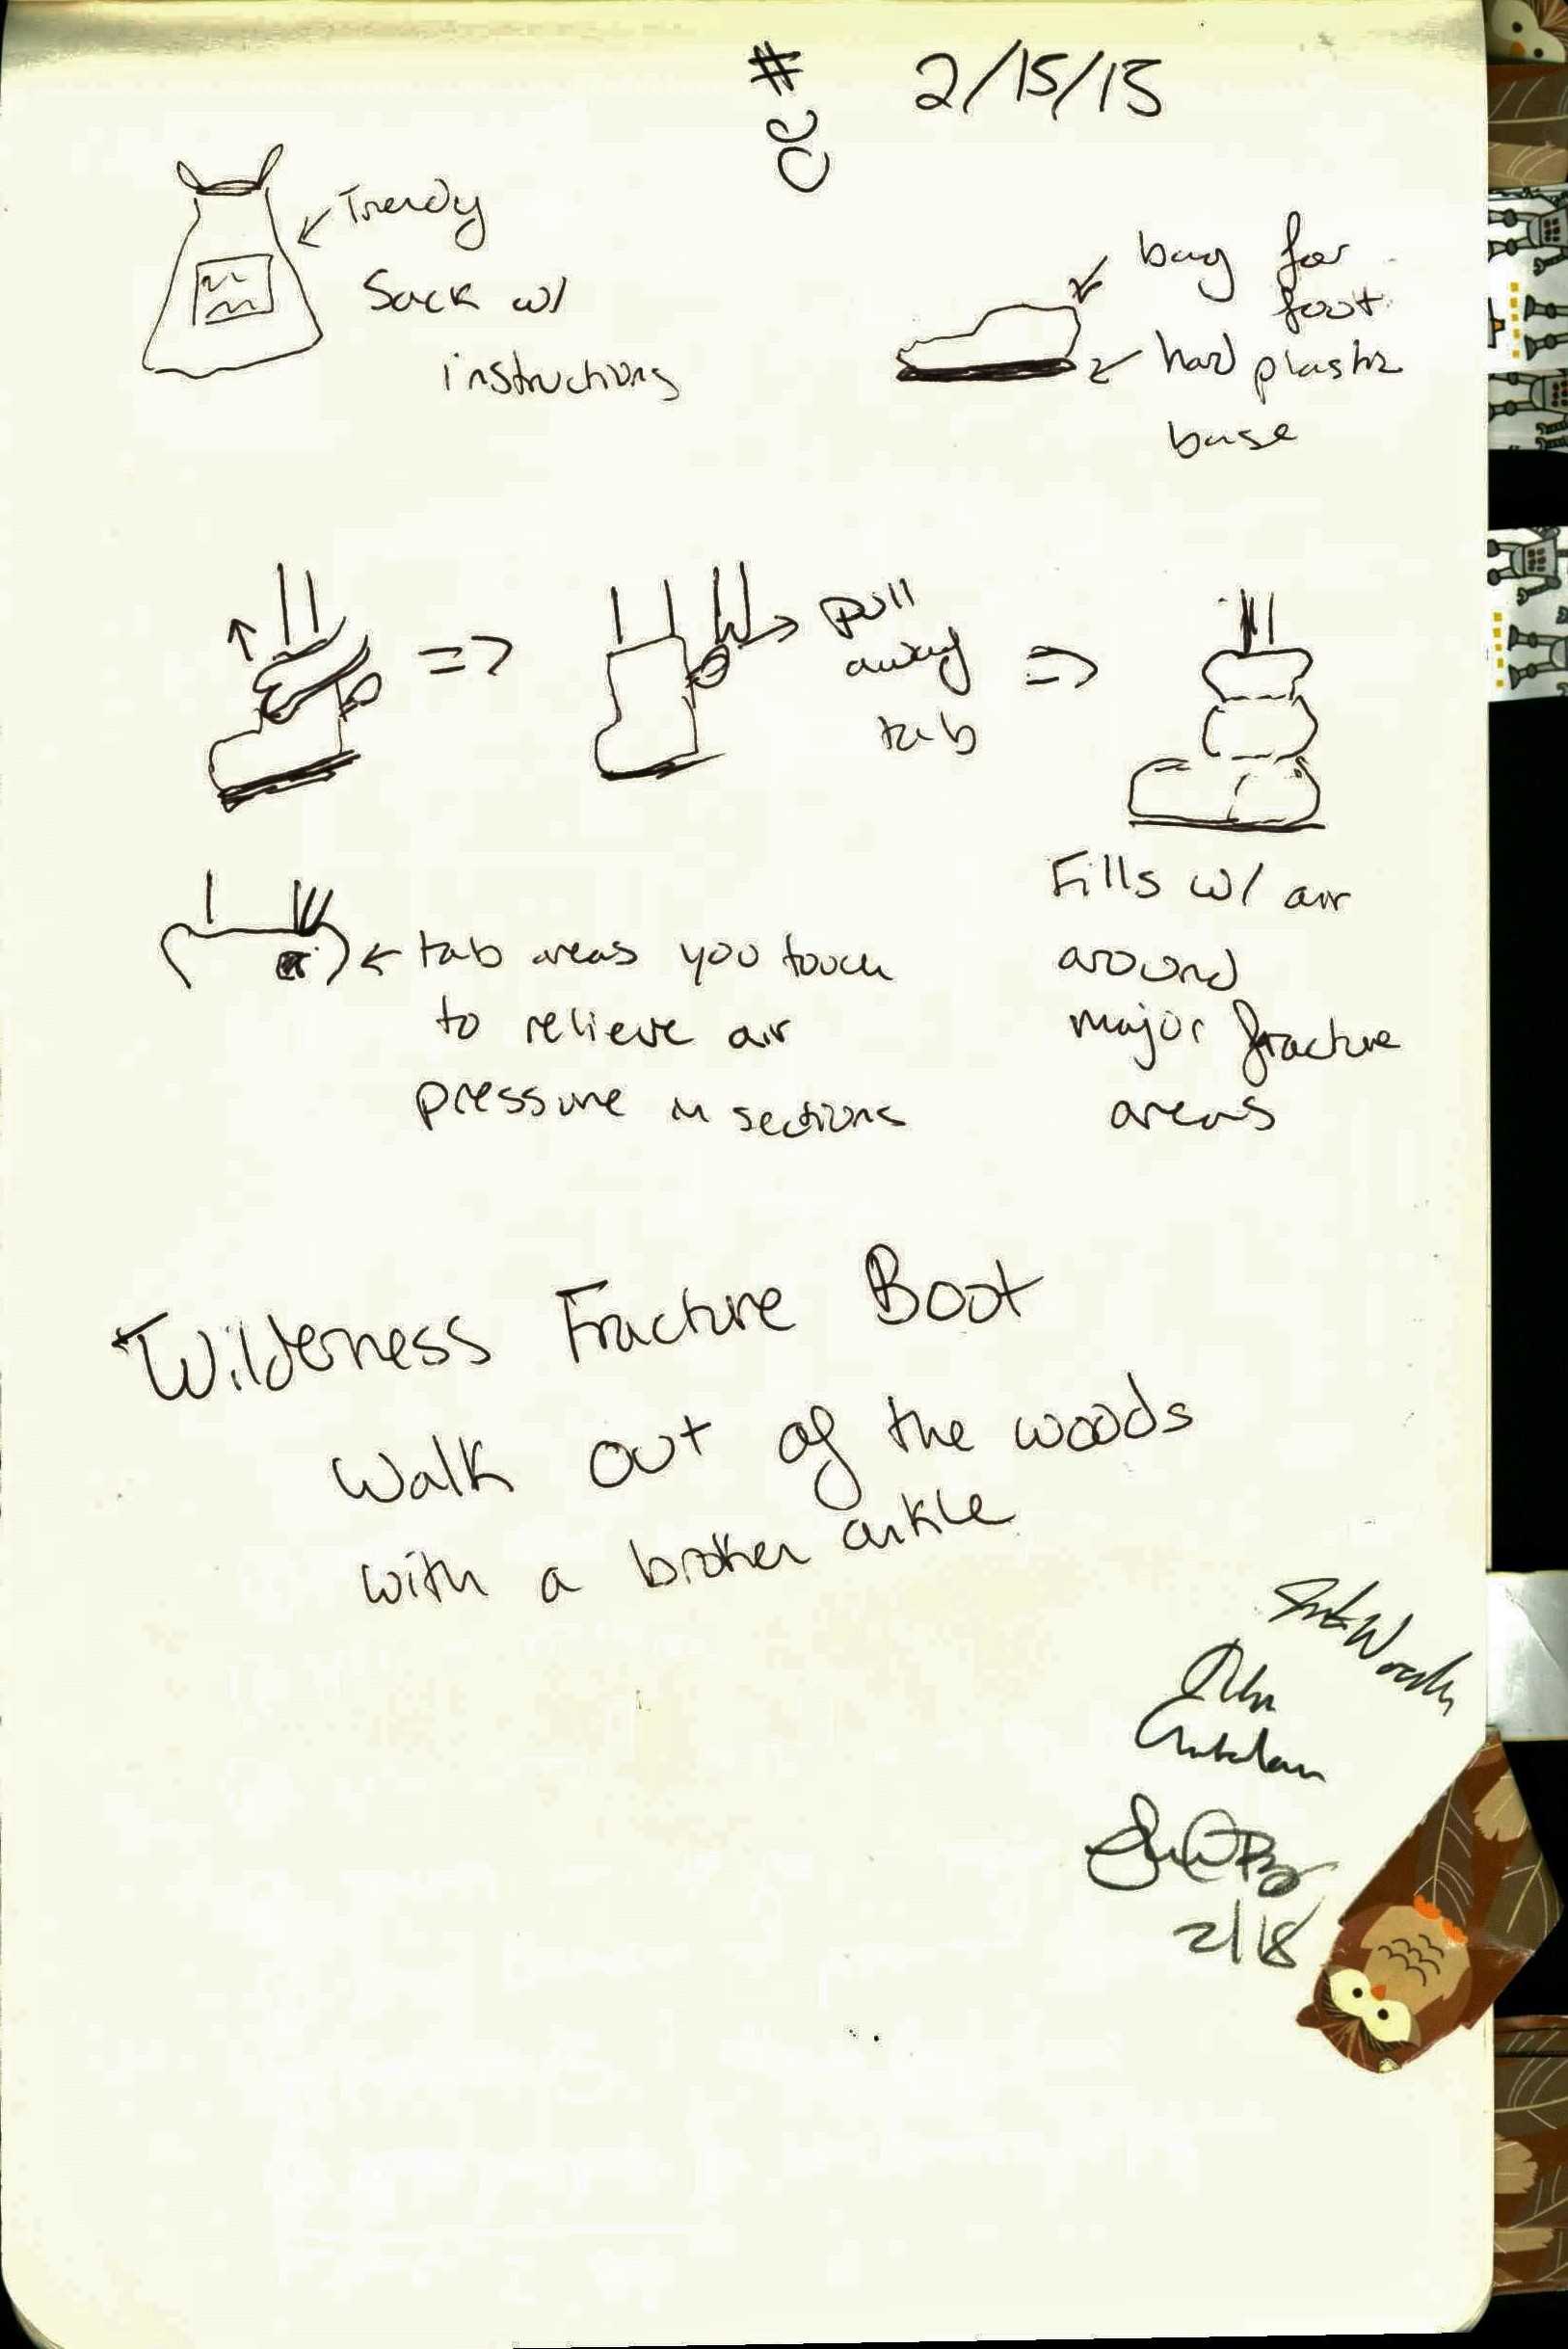 # 2/15/15
Trendy
Sack w/
instructions
bag for
foot
hard plastic
base
=> pull
away
tab =>
Fills w/ air
around
major fracture
areas
← tab areas you touch
to relieve air
pressure in sections
Wilderness Fracture Boot
Walk out of the woods
with a broken ankle
2/18